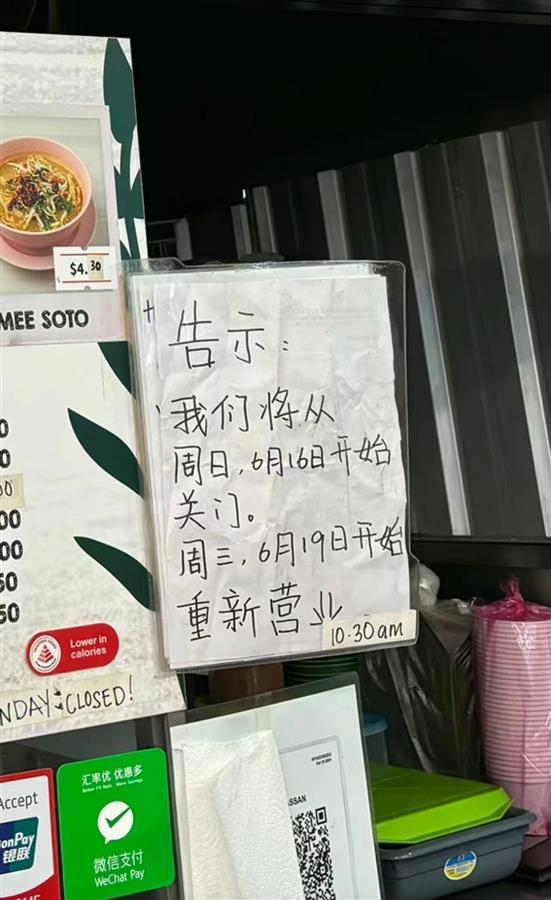 $4.30
MEE SOTO
告示:
我们将从
周日,6月16日开始
关门。
周三,6月19日开始
重新营业
10.30am
Lower in
calories
CLOSED!
汇率优 优惠多
Better FX Rate More Savings
微信支付
WeChat Pay
Accept
银联